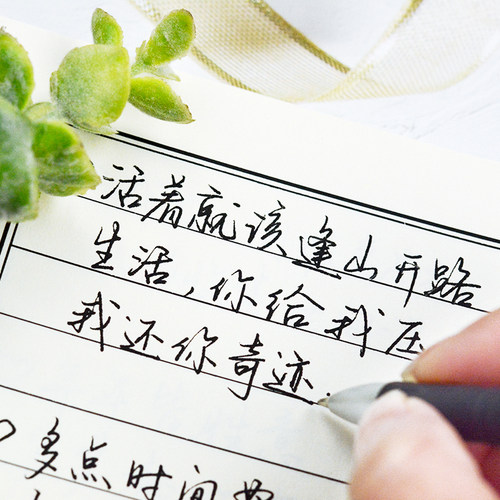 活着就该逢山开路
生活，你给我压
我还你奇迹.
多点时间